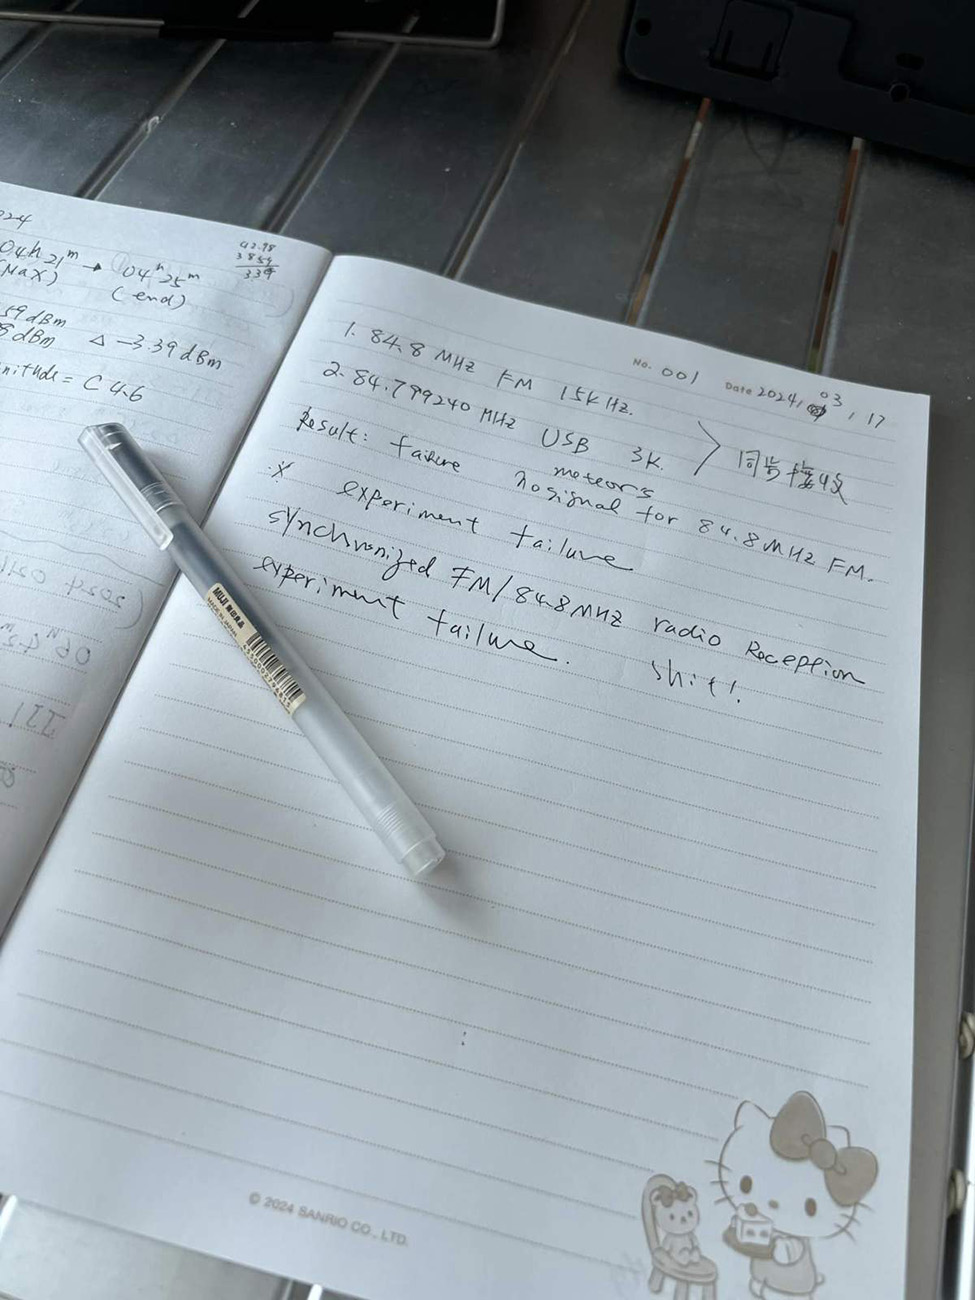 04h21m → 04h25m
(Max) (end)
42.98
3859
339
59 dBm
dBm △ -3.39 dBm
= C 4.6
No. 001 Date 2024, 03, 17
1. 84.8 MHz FM 15KHz.
2. 84.799240 MHz USB 3K.
同步接收
Result: failure meteors
no signal for 84.8MHz FM.
※ experiment failure
synchronized FM/84.8MHz radio Reception
experiment failure. shit!
MUJI 無印良品
MADE IN JAPAN
© 2024 SANRIO CO., LTD.